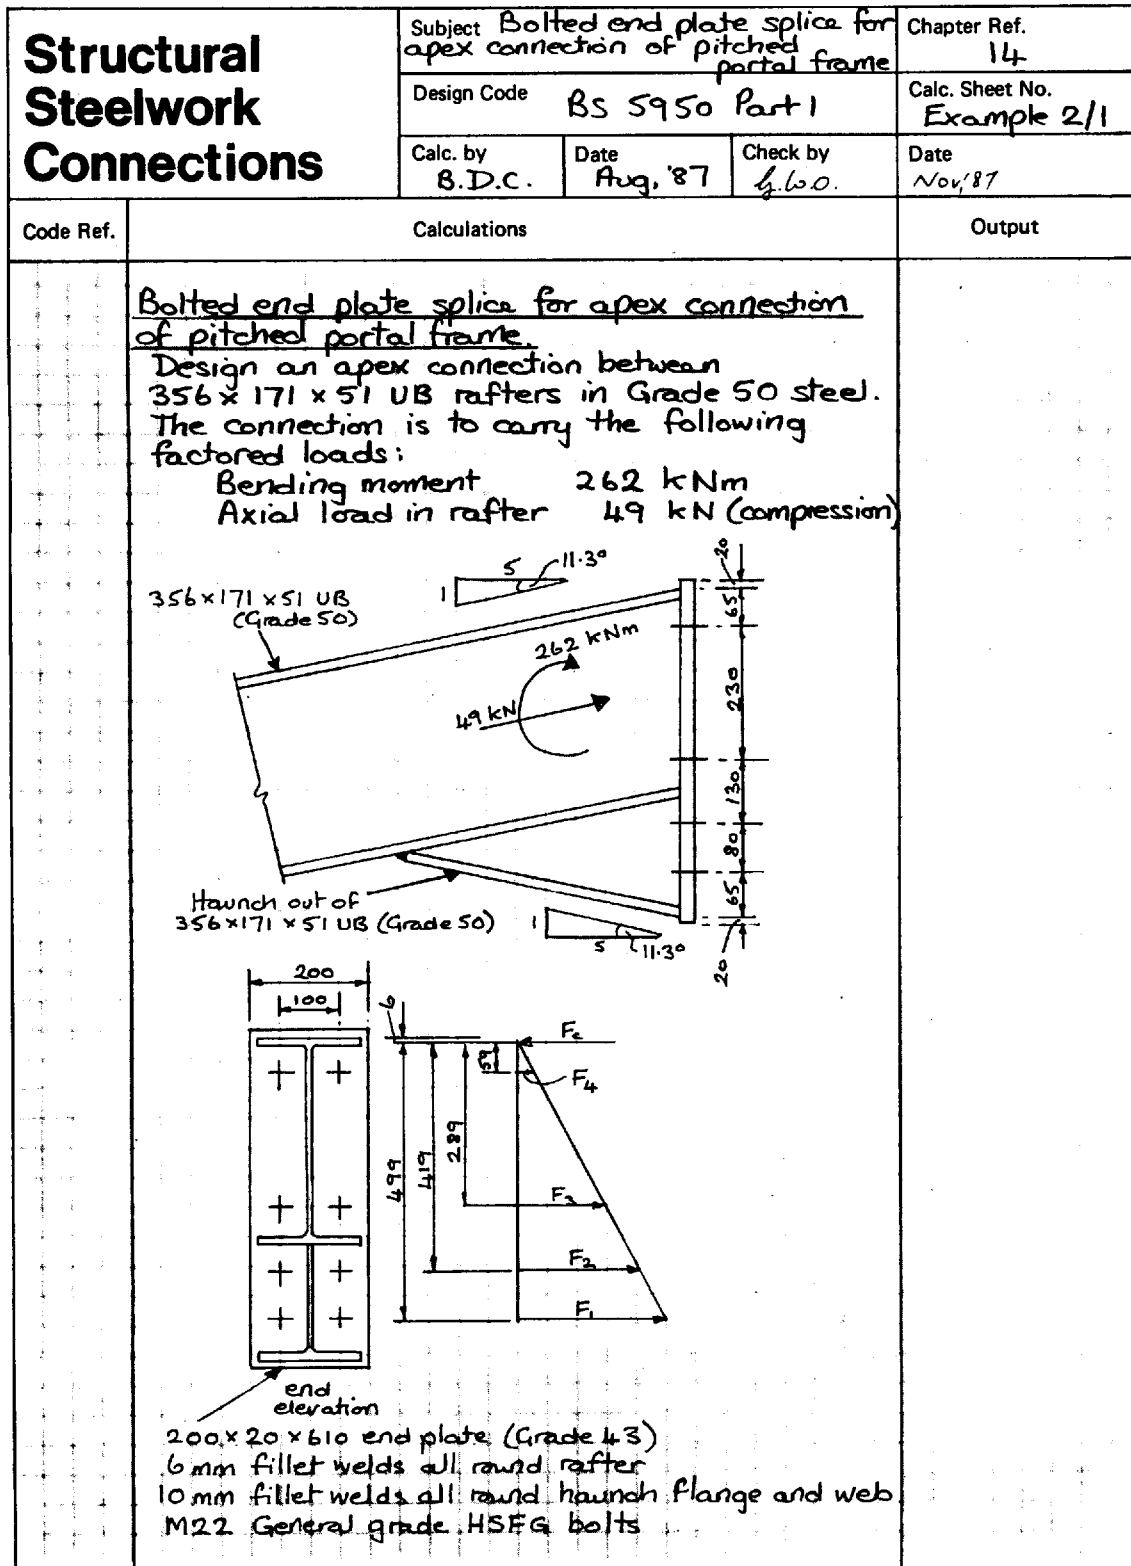 Structural
Steelwork
Connections
Subject Bolted end plate splice for
apex connection of pitched
portal frame
Chapter Ref.
14
Design Code BS 5950 Part 1
Calc. Sheet No.
Example 2/1
Calc. by
B.D.C.
Date
Aug, '87
Check by
G.W.O.
Date
Nov,'87
Code Ref.
Calculations
Output
Bolted end plate splice for apex connection
of pitched portal frame.
Design an apex connection between
356 x 171 x 51 UB rafters in Grade 50 steel.
The connection is to carry the following
factored loads:
Bending moment 262 kNm
Axial load in rafter 49 kN (compression)
5
11.3°
1
20
65
230
130
80
65
20
356x171x51 UB
(Grade 50)
262 kNm
49 kN
Haunch out of
356x171x51 UB (Grade 50)
1
5
11.3°
200
100
6
59
289
419
499
Fc
F4
F3
F2
F1
end
elevation
200 x 20 x 610 end plate (Grade 43)
6 mm fillet welds all round rafter
10 mm fillet welds all round haunch flange and web
M22 General grade HSFG bolts